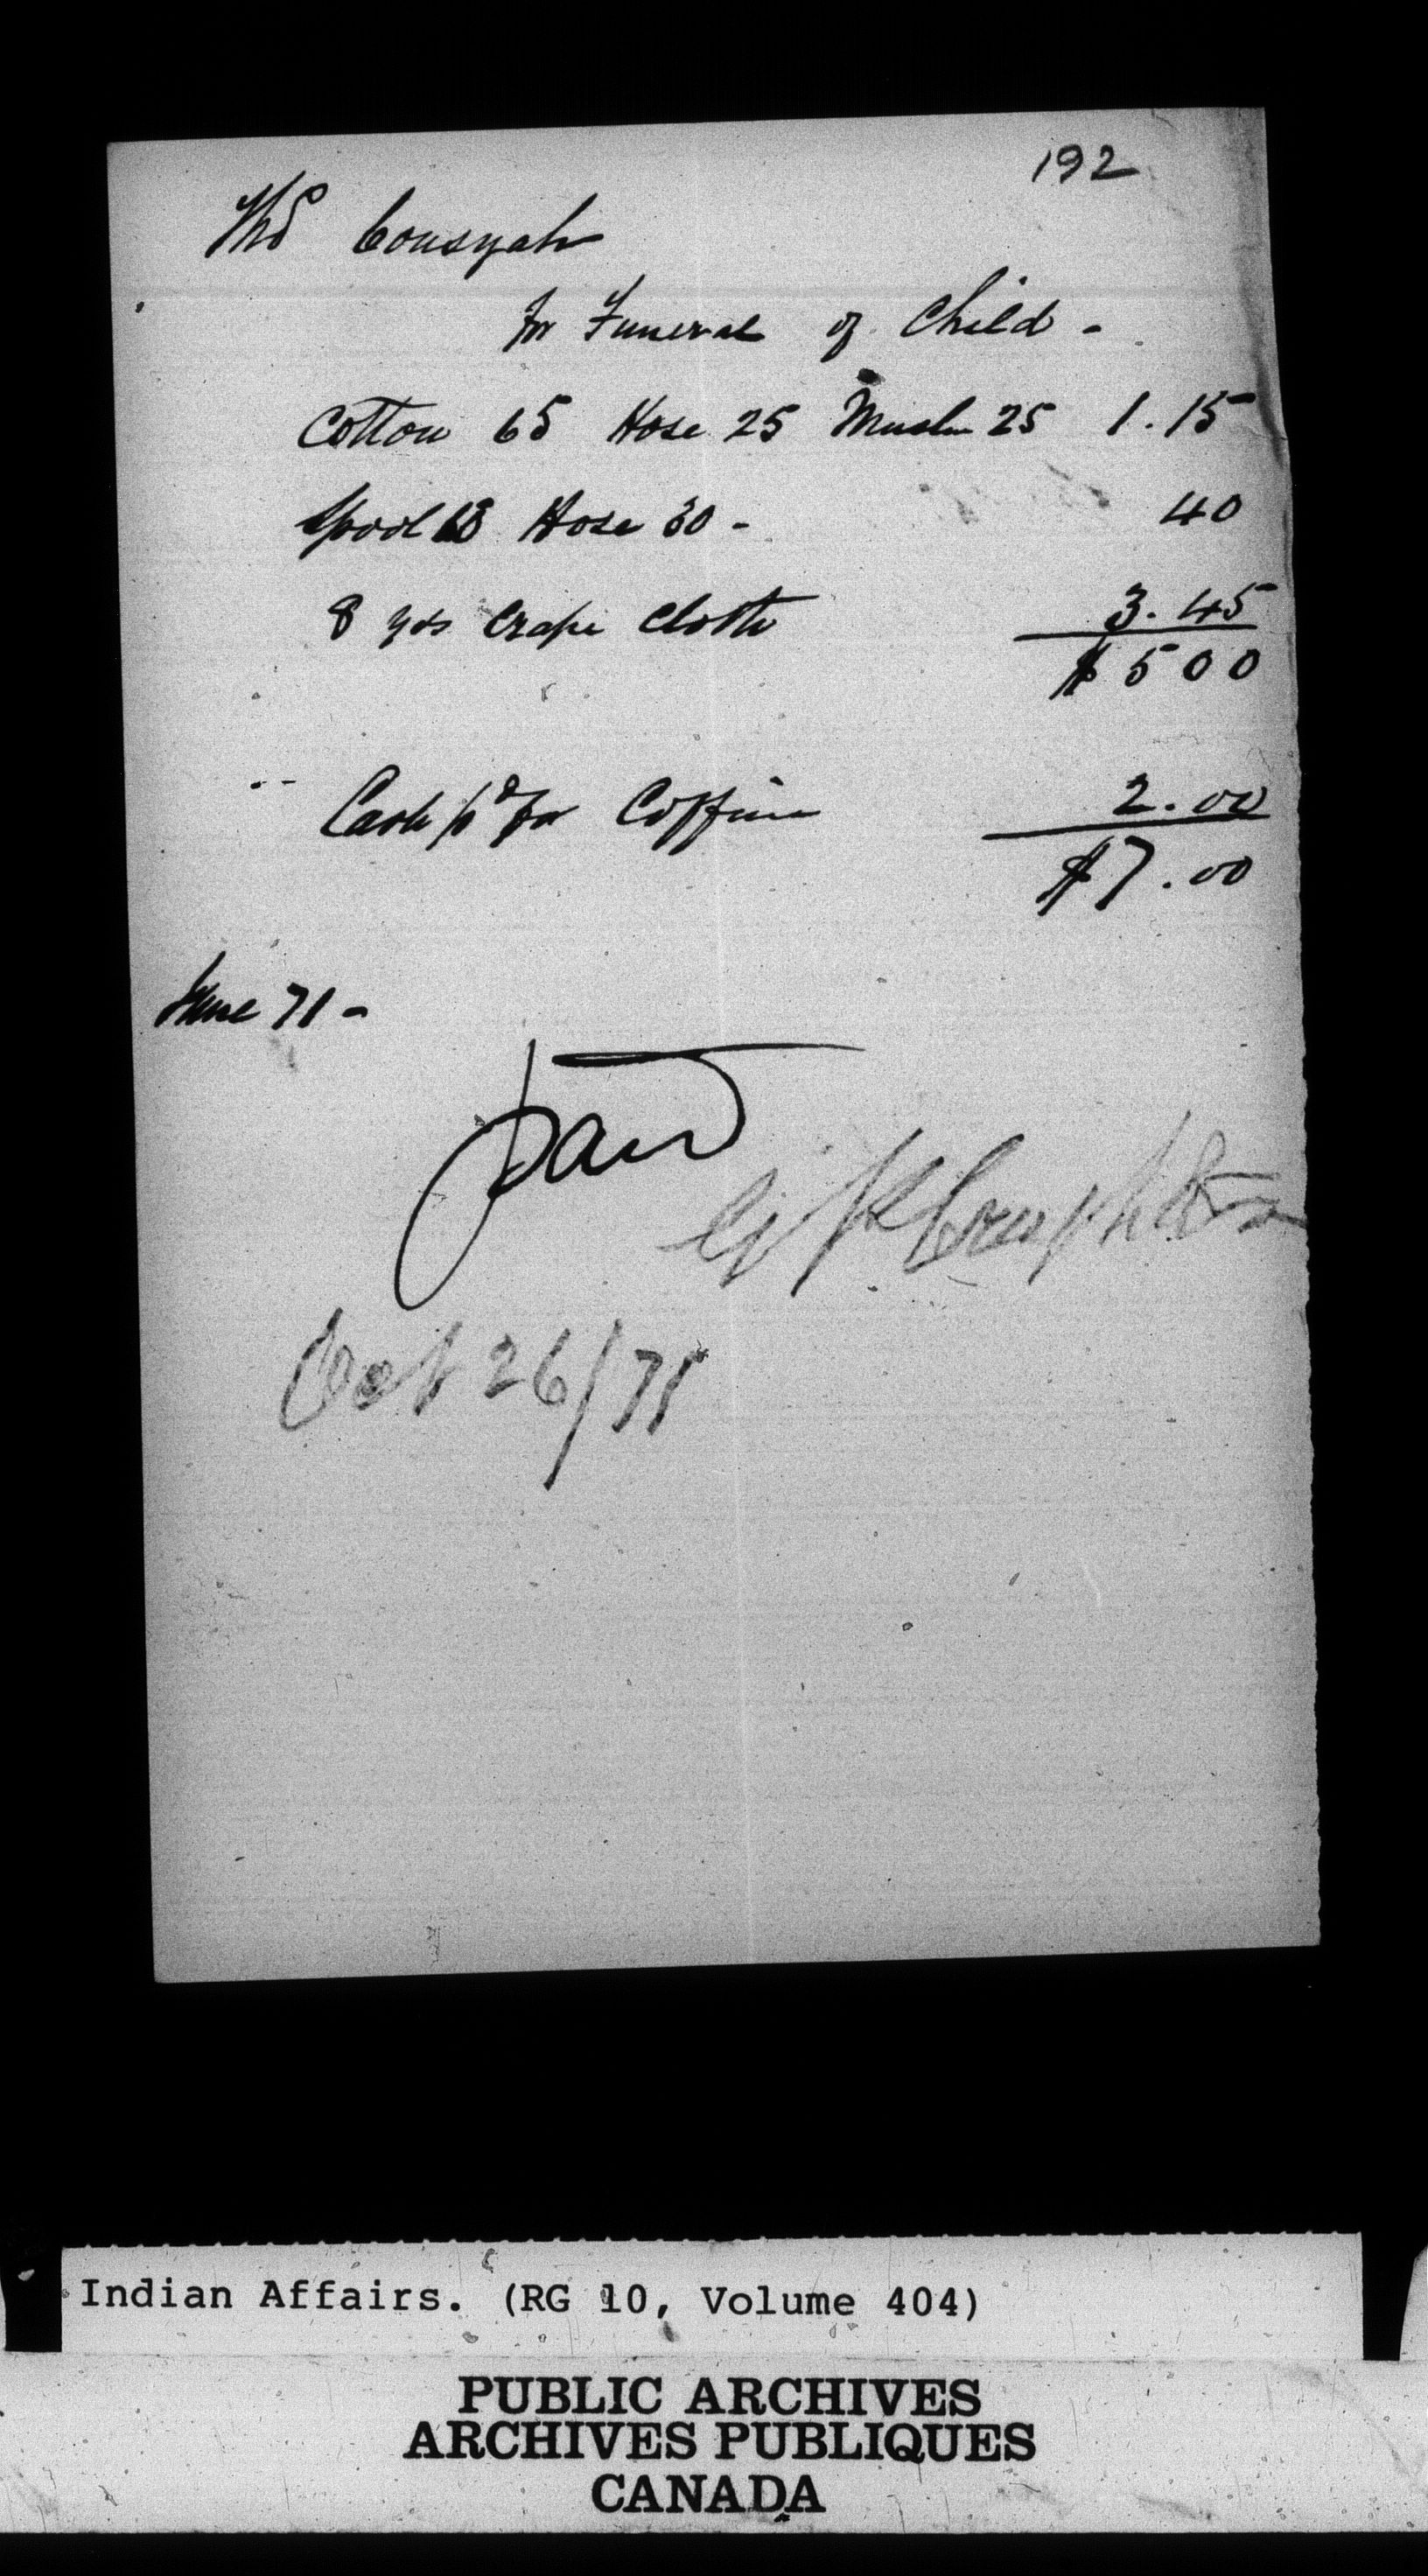 192
Thos Cousyah
for Funeral of Child -
Cotton 65 Hose 25 Muslin 25 1.15
Spool 10 Hose 30 - 40
8 yds Crape Cloth 3.45
$ 5 00
Cash pd for Coffin 2.00
$7.00
June 71 -
paid
Oct 26/71
Indian Affairs. (RG 10, Volume 404)
PUBLIC ARCHIVES
ARCHIVES PUBLIQUES
CANADA